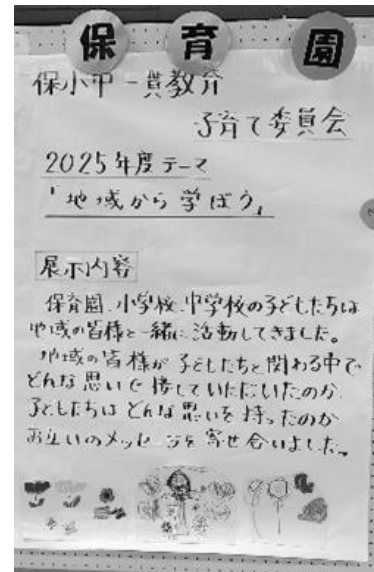 保育園
保小中一貫教育
子育て委員会
2025年度テーマ
「地域から学ぼう」
展示内容
保育園、小学校、中学校の子どもたちは
地域の皆様と一緒に活動してきました。
地域の皆様が子どもたちと関わる中で
どんな思いで接していただいたのか
子どもたちはどんな思いを持ったのか
お互いのメッセージを寄せ合いました。